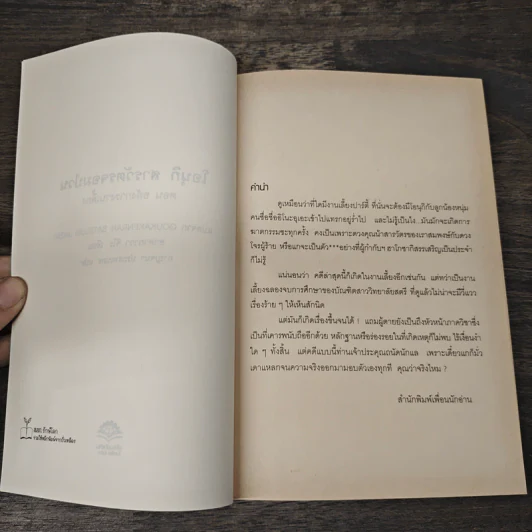 คำนำ
ดูเหมือนว่าที่ใดมีงานเลี้ยงปาร์ตี้ ที่นั่นจะต้องมีโอนุกิกับลูกน้องหนุ่ม
คนซื่อชื่ออิโนะอุเอะเข้าไปแทรกอยู่ร่ำไป และไม่รู้เป็นไง มันมักจะเกิดการ
ฆาตกรรมซะทุกครั้ง คงเป็นเพราะดวงคุณน้าสารวัตรของเราสมพงษ์กับดวง
โจรผู้ร้าย หรือแกจะเป็นตัว***อย่างที่ผู้กำกับฯ ฮาโกซากิสรรเสริญเป็นประจำ
ก็ไม่รู้
แน่นอนว่า คดีล่าสุดนี้ก็เกิดในงานเลี้ยงอีกเช่นกัน แต่ทว่าเป็นงาน
เลี้ยงฉลองจบการศึกษาของบัณฑิตสาววิทยาลัยสตรี ที่ดูแล้วไม่น่าจะมีวี่แวว
เรื่องร้าย ๆ ให้เห็นสักนิด
แต่มันก็เกิดเรื่องขึ้นจนได้ ! แถมผู้ตายยังเป็นถึงหัวหน้าภาควิชาซึ่ง
เป็นที่เคารพนับถืออีกด้วย หลักฐานหรือร่องรอยในที่เกิดเหตุก็ไม่พบ ไร้เงื่อนงำ
ใด ๆ ทั้งสิ้น แต่คดีแบบนี้ท่านเจ้าประคุณถนัดนักแล เพราะเดี๋ยวแกก็มั่ว
เดาแหลกจนความจริงออกมามอบตัวเองทุกที คุณว่าจริงไหม ?
สำนักพิมพ์เพื่อนนักอ่าน